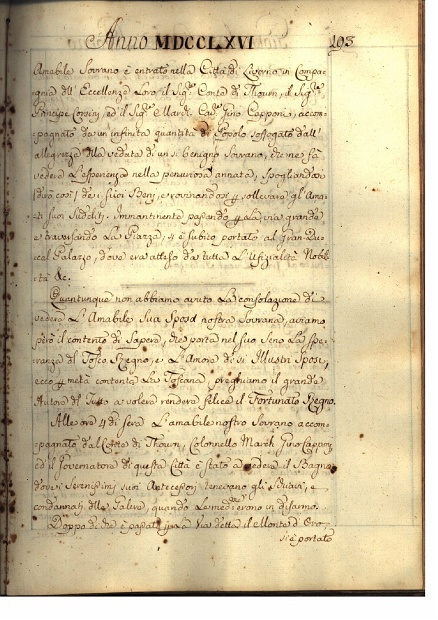 Anno MDCCLXVI 193
Amabile Sovrano è entrato nella Città di Livorno in Compa-
gnia dell' Eccellenze Loro il Sig.r Conte di Thourn, il Sig.r
Principe Corsini, ed il Sig.r March. Cav. Gino Capponi, accom-
pagnato da un infinita quantità di Popolo soffogato dall'
allegrezza della veduta di un si benigno Sovrano, che ne fà
vedere l'esperienza nella penuriosa annata, spogliandosi
dirò così de i suoi Beni, e rovinandosi p sollevare gl'Ama-
ti suoi Sudditi. immantinente passando p la via grande
e traversando La Piazza, si è subito portato al Gran Du-
cal Palazzo, dove era atteso da tutta L'Ufizialità Nobil-
tà &c.
Quantunque non abbiamo avuto La consolazione di
vedere L'Amabile Sua Sposa nostra Sovrana, aviamo
però il contento di Sapere, che porta nel suo Seno La Spe-
ranza del Tosco Regno, e L'Amore di si Illustri Sposi,
ecco p metà contenta La Toscana, preghiamo il grande
Autore del Tutto a volere rendere felice il Fortunato Regno.
Alle ore di sera L'amabile nostro Sovrano accom-
pagnato dal Conte di Thourn, Colonnello March. Gino Capponi,
ed il Governatore di questa Città è stato a vedere il Bagno
dove i Serenissimi suoi Antecessori tenevano gli Schiavi, e
condannati alle Galere, quando erono in disarmo.
Doppo di che è passato p La Via detta il Monte d'Oro,
si è portato